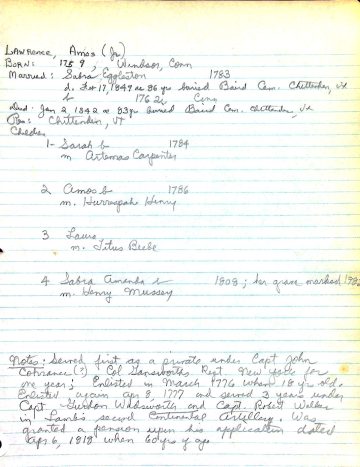 LAWRENCE, Amos (Jr)
BORN: 1759, Windsor, Conn
Married: Sabra Eggleston 1783
d. Feb 17, 1849 ae 86 yrs buried Baird Cem. Chittenden, Vt
b 1762 Conn
Died Jan 2, 1842 ae 83 yr buried Baird Cem. Chittenden, Vt
Res: Chittenden, VT
Childen
1- Sarah b 1784
m Artemas Carpenter
2 Amos b 1786
m. Henry
3 Laura
m. Titus Beebe
4 Sabra Amanda b 1808; her grave marked
m. Henry Mussey
Notes: Served first as a private under Capt John
Cochrance (?) Col Gansworths Regt. New York for
one year; Enlisted in March 1776 when 18 yr old.
Enlisted again apr 8, 1777 and served 3 years under
Capt. Gurdon Wadsworth and Capt. Robert Walker
in Lambs second Continental Artillery. Was
granted a pension upon his application dated
Apr 6, 1818 when 60 yrs of age